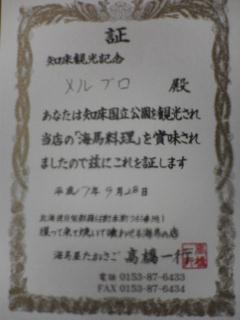 証
知床観光記念
メルブロ 殿
あなたは知床国立公園を観光され
当店の「海馬料理」を賞味され
ましたので茲にこれを証します
平成17年9月28日
北海道目梨郡羅臼町本町
獲って来て焼いて喰わせる海馬の店
海馬屋たかさご 高橋一行
電話 0153-87-6433
FAX 0153-87-6434